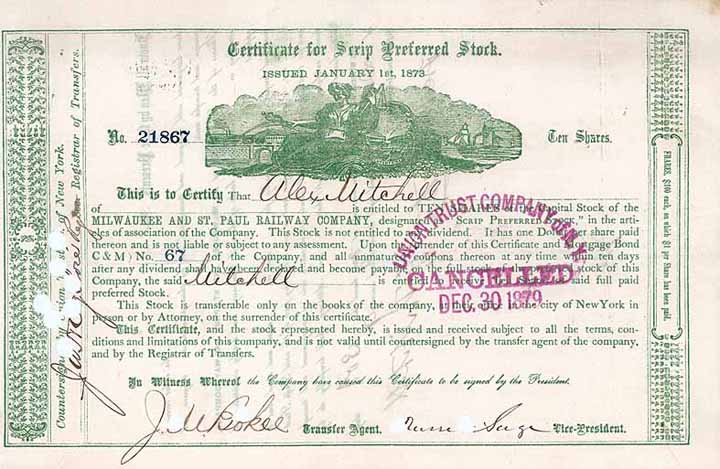 Certificate for Scrip Preferred Stock.
ISSUED JANUARY 1st, 1873
No. 21867
Ten Shares.
This is to Certify That Alex Mitchell
of is entitled to TEN SHARES of the Capital Stock of the
MILWAUKEE AND ST. PAUL RAILWAY COMPANY, designated "SCRIP PREFERRED STOCK," in the arti-
cles of association of the Company. This Stock is not entitled to any dividend. It has one Dollar per share paid
thereon and is not liable or subject to any assessment. Upon the surrender of this Certificate and Mortgage Bond
C & M) No. 67 of the Company, and all unmatured coupons thereon at any time within ten days
after any dividend shall have been declared and become payable on the full preferred stock of this
Company, the said Mitchell is entitled to receive ten shares of said full paid
preferred Stock.
This Stock is transferable only on the books of the company, at its office in the city of New York in
person or by Attorney, on the surrender of this certificate.
This Certificate, and the stock represented hereby, is issued and received subject to all the terms, con-
ditions and limitations of this company, and is not valid until countersigned by the transfer agent of the company,
and by the Registrar of Transfers.
In Witness Whereof the Company have caused this Certificate to be signed by the President.
Transfer Agent.
Vice-President.
UNION TRUST COMPANY OF N.Y.
CANCELLED
DEC. 30 1879
Countersigned
of New York.
Registrar of Transfers.
SHARES, $100 each, on which $1 per Share has been paid.